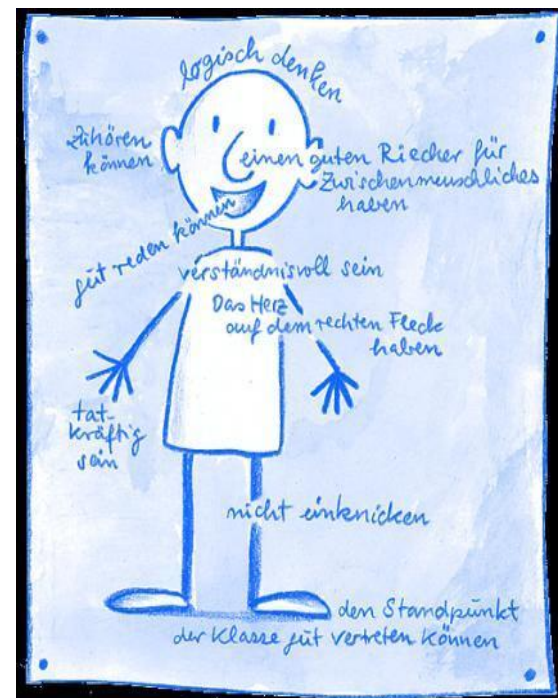 logisch denken
zuhören
können
einen guten Riecher für
Zwischenmenschliches
haben
gut reden können
verständnisvoll sein
Das Herz
auf dem rechten Fleck
haben
tat-
kräftig
sein
nicht einknicken
den Standpunkt
der Klasse gut vertreten können